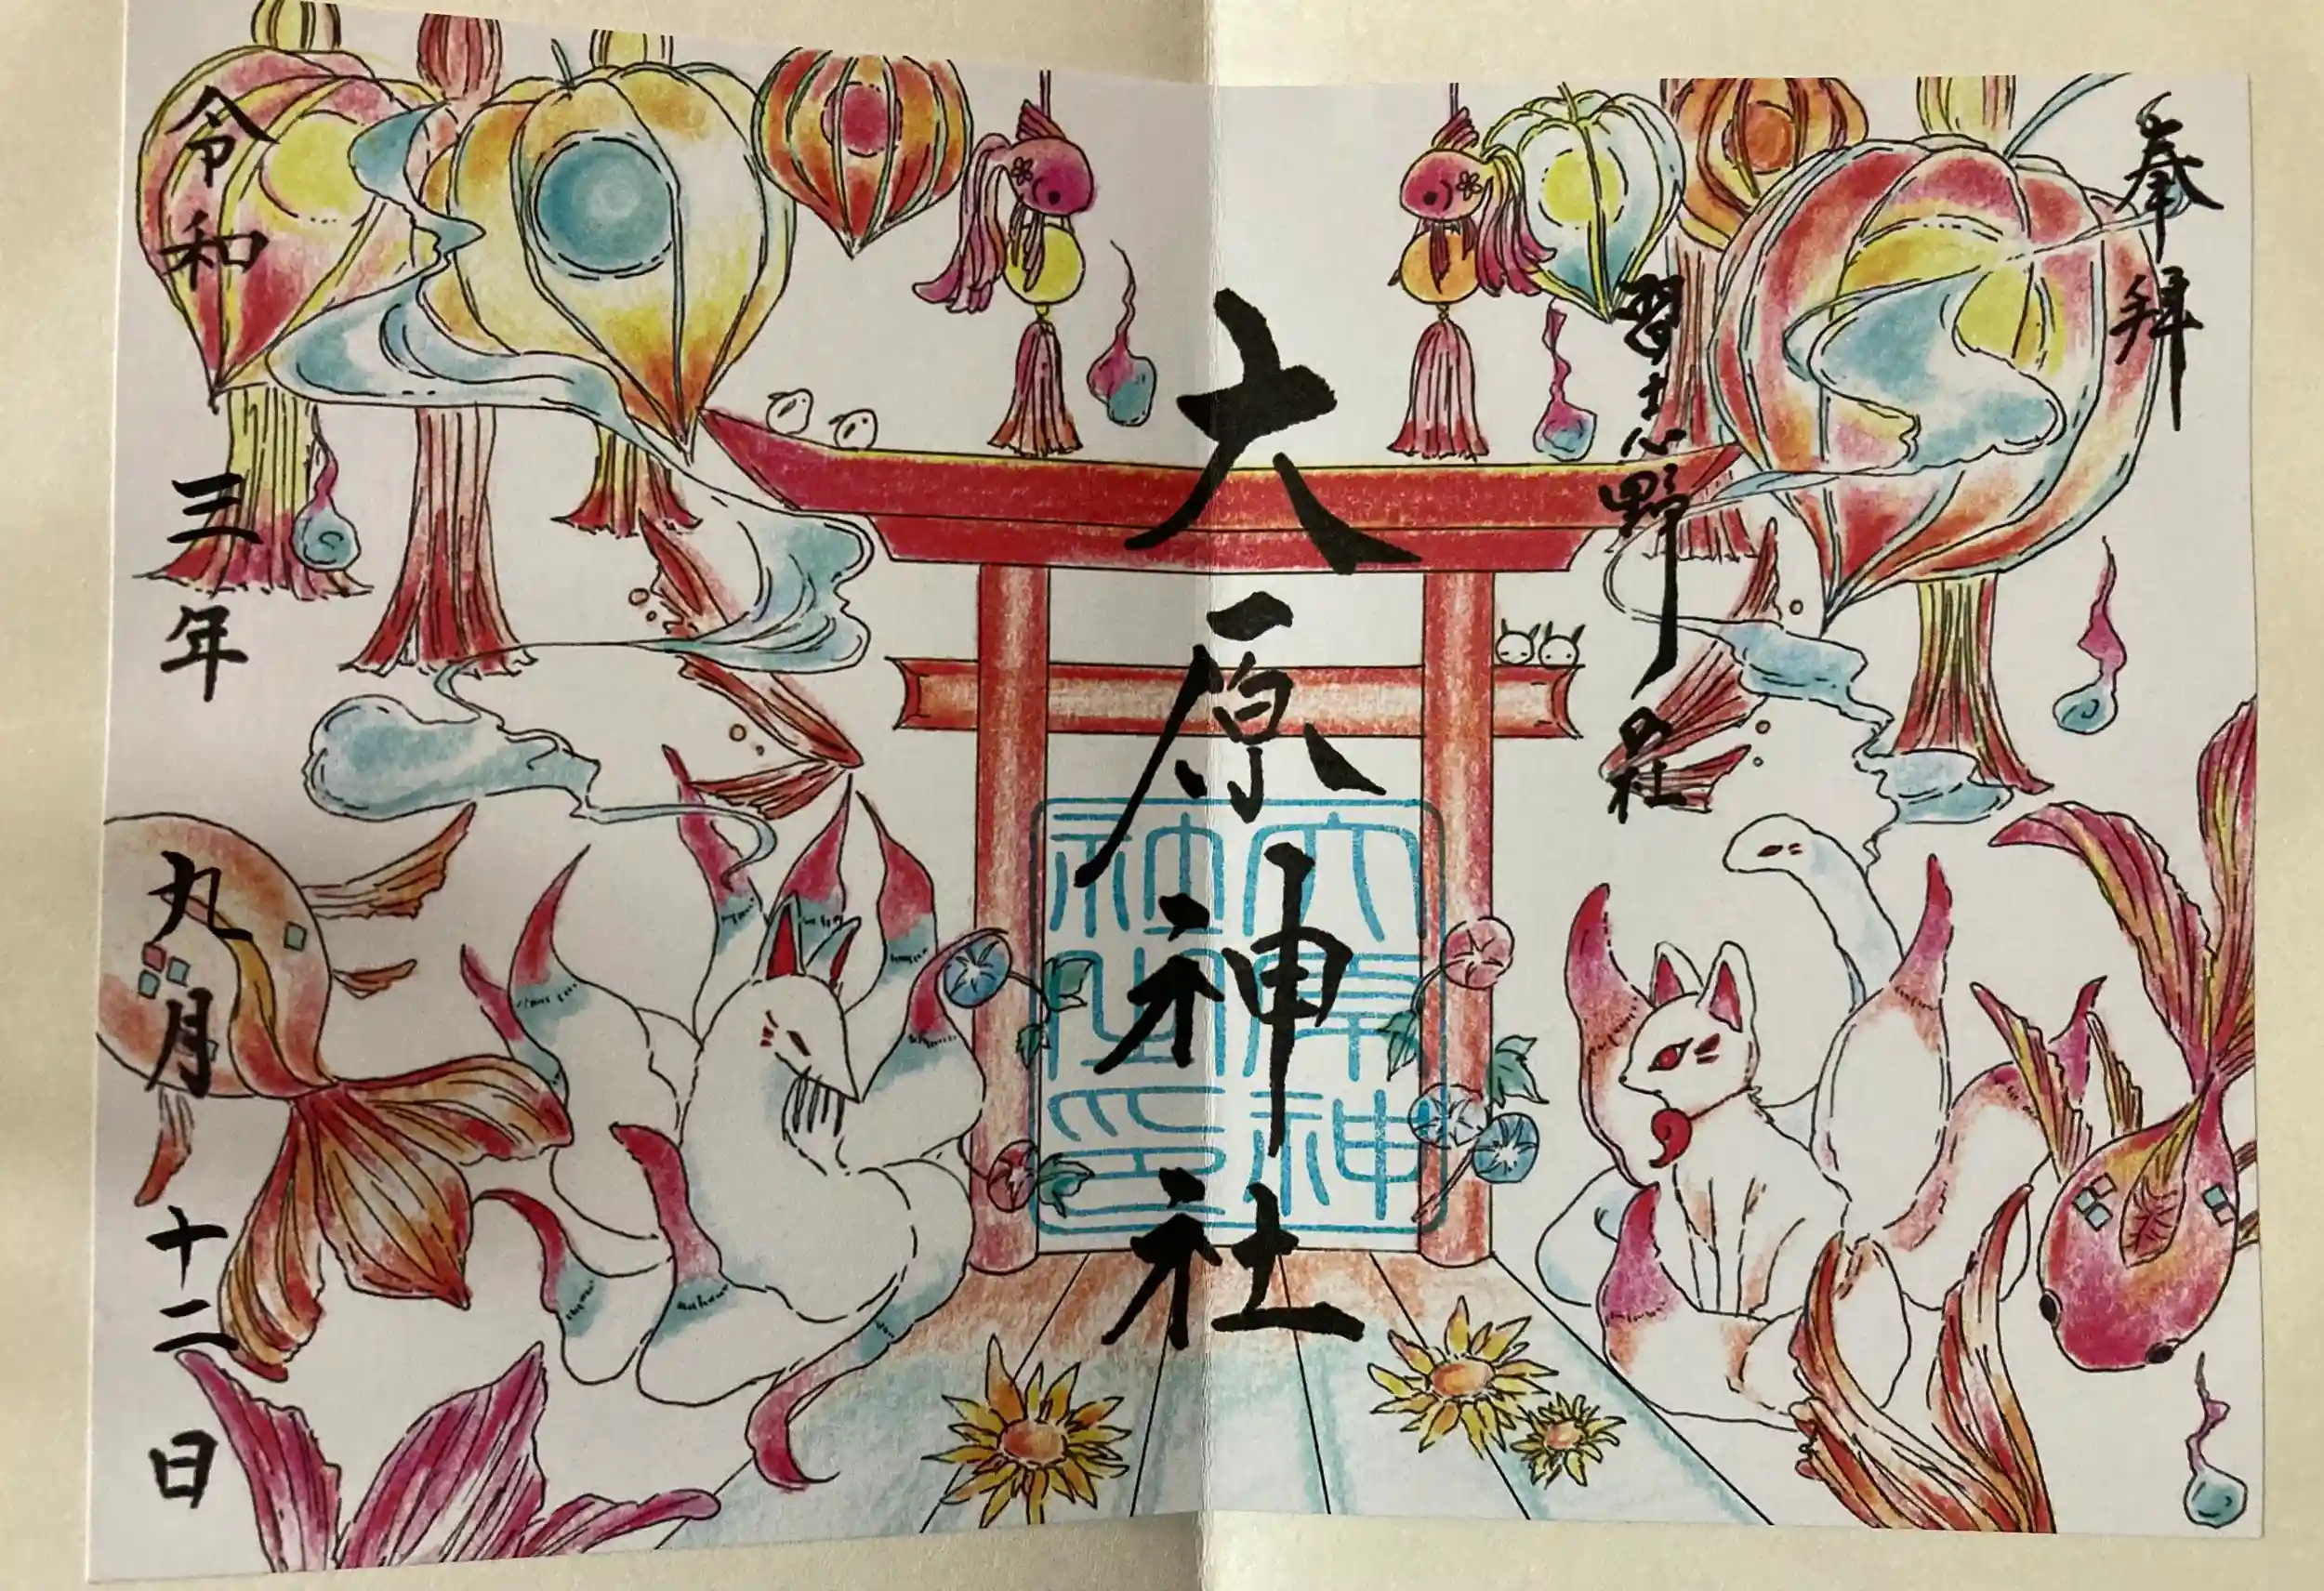 奉拝
習志野の社
大原神社
大原神
社之印
令和三年九月十二日